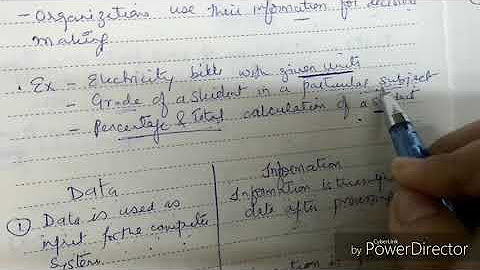 - Organizations use their information for decisions
making.
• Ex - Electricity bills with given units
- Grade of a student in a particular subject
- Percentage & Total calculation of a
Data
Information
① Data is used as
input for the computer
system.
Information is
data after processing
by CyberLink
PowerDirector